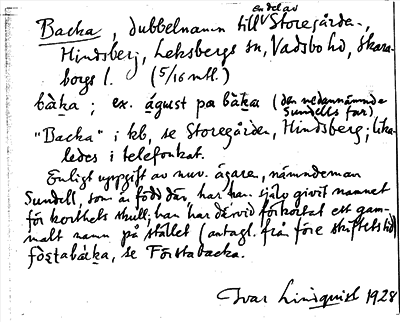 en del av
Backa, dubbelnamn till Storegården,
Hindsberg, Leksbergs sn, Vadsbo hd, Skara-
borgs l. (5/16 mtl.)
bàka; ex. águst pa bàka (den nedannämnde
Sundells far)
"Backa" i kb, se Storegården, Hindsberg; lika-
ledes i telefonkat.
Enligt uppgift av nuv. ägaren, nämndeman
Sundell, som är född där, har han själv givit namnet
för korthets skull; han har därvid förkortat ett gam-
malt namn på stället (antagl. från före skiftets tid)
föstabàka, se Förstabacka.
Ivar Lindquist 1928